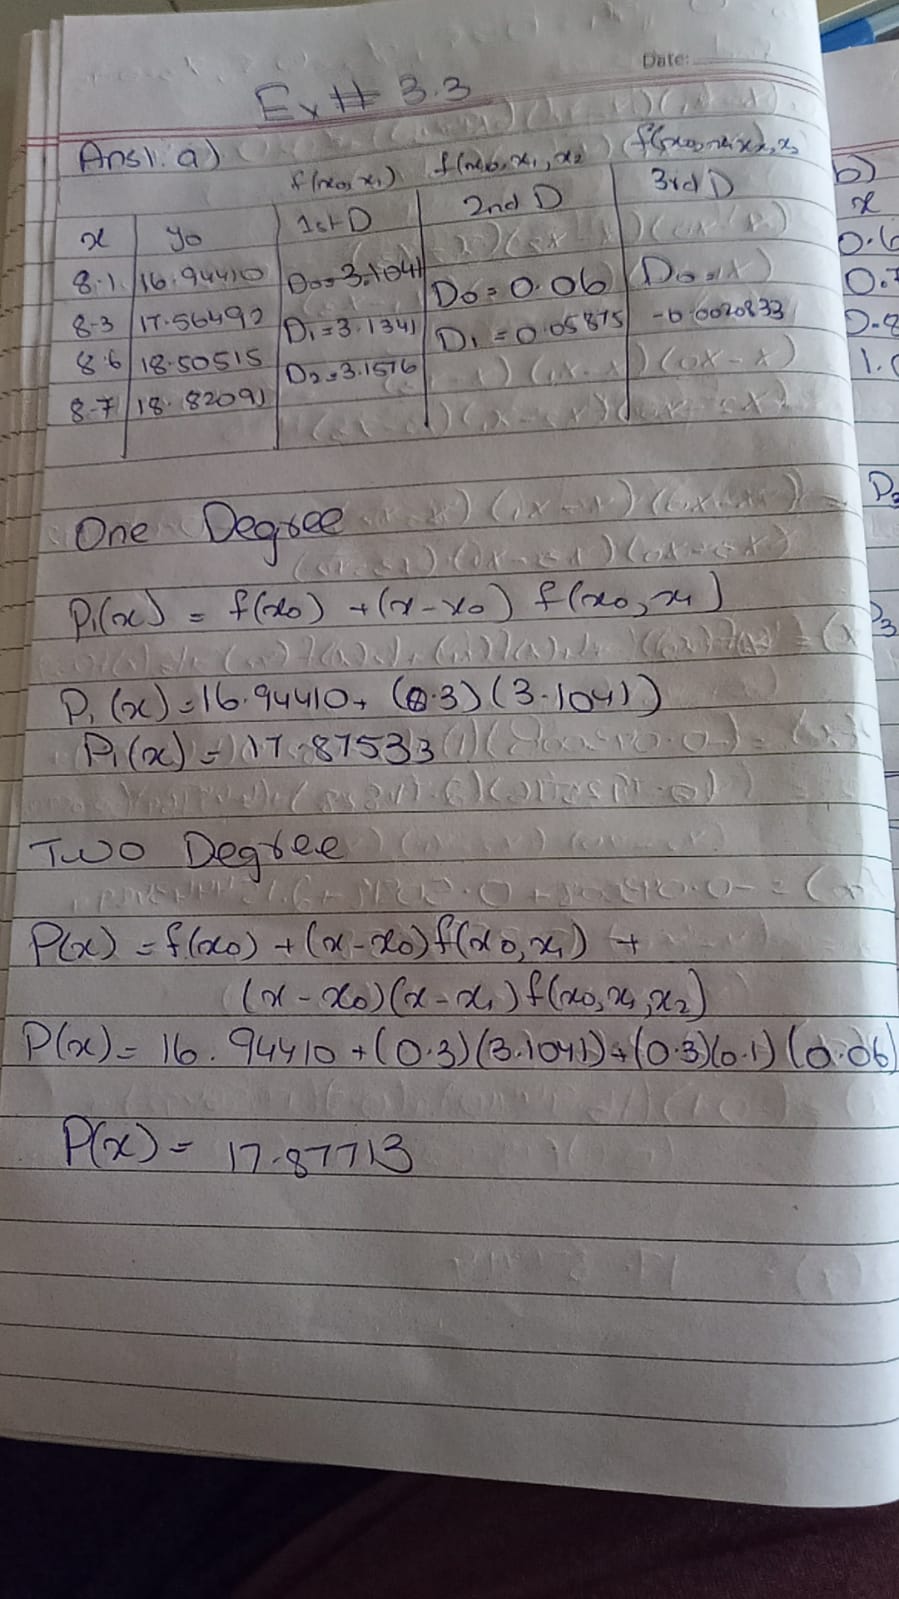 Date:
Ex# 3.3
Ans1. a)
f(x0,x1) f(x0,x1,x2)
x y0 1st D 2nd D 3rd D
8.1 16.94410 D0=3.1041 D0=0.06 D0=
8.3 17.56492 D1=3.1341 D1=0.05875 -0.0020833
8.6 18.50515 D2=3.1576
8.7 18.82091
One Degree
P1(x) = f(x0) + (x-x0) f(x0,x1)
P1(x)=16.94410+ (0.3)(3.1041)
P1(x) = 17.87533
Two Degree
P(x) = f(x0) + (x-x0)f(x0,x1) +
(x-x0)(x-x1)f(x0,x1,x2)
P(x)= 16.94410+(0.3)(3.1041)+(0.3)(0.1)(0.06)
P(x)= 17.87713
b)
x